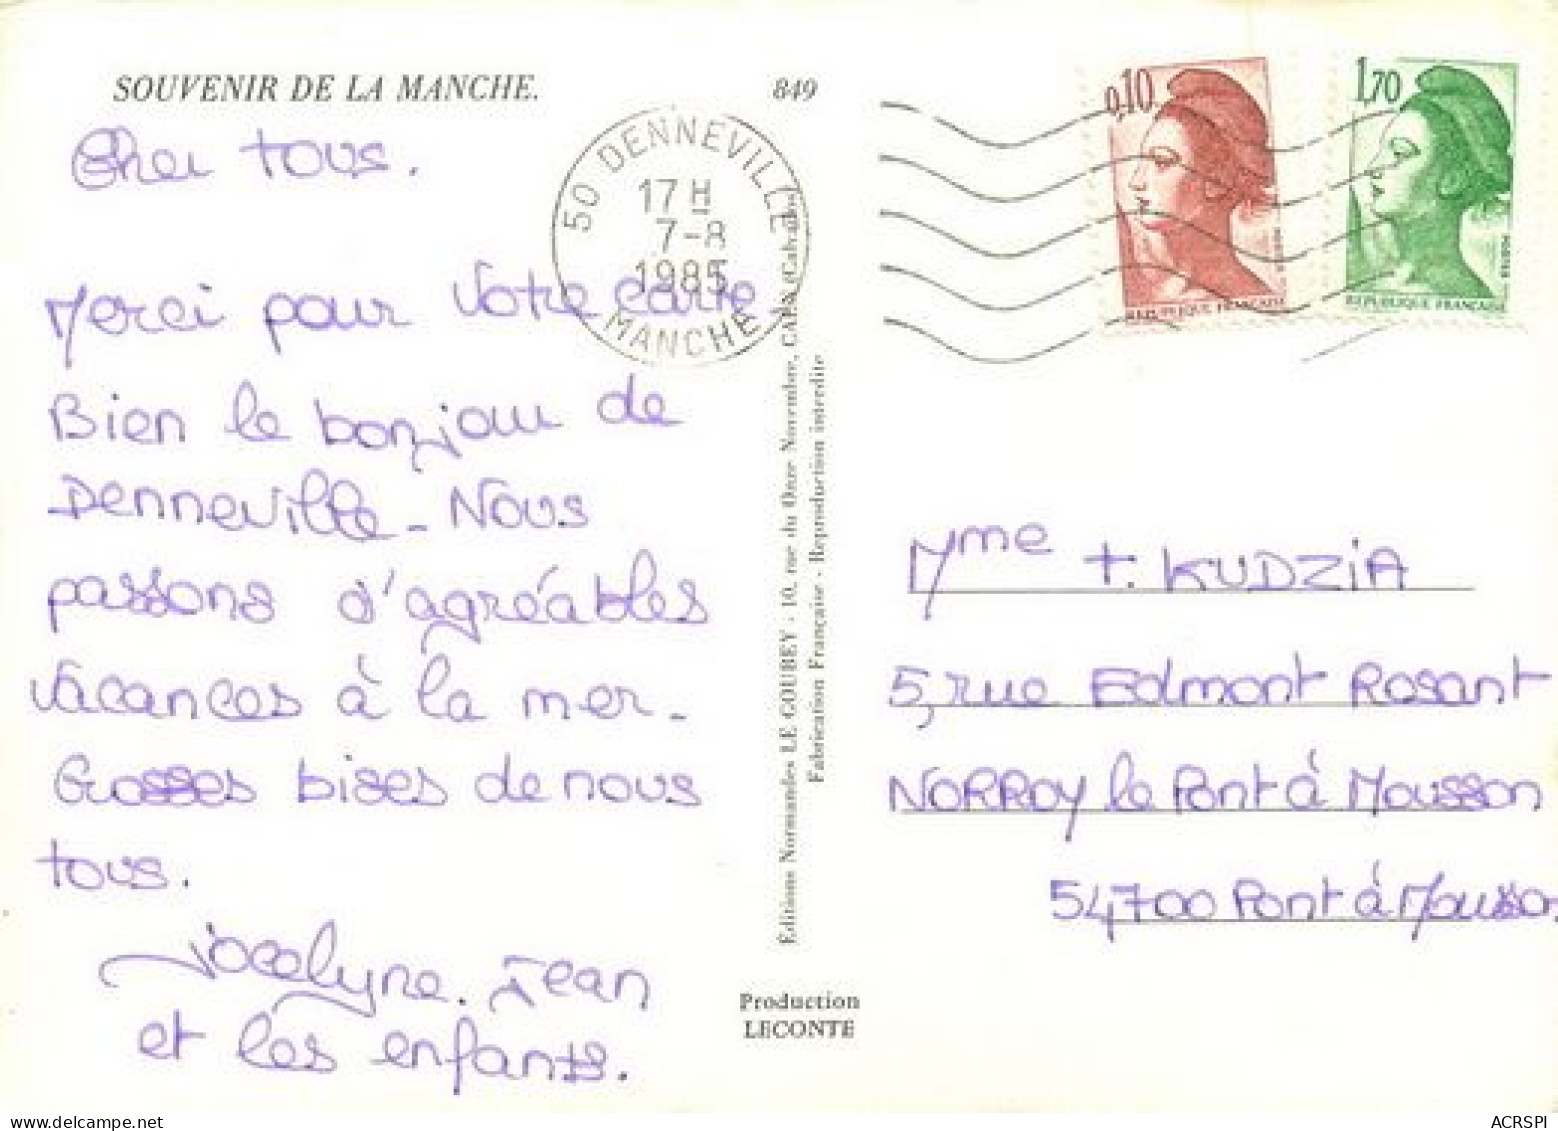 SOUVENIR DE LA MANCHE.
849
Cher tous.
Merci pour votre carte
Bien le bonjour de
Denneville - Nous
passons d'agréables
vacances à la mer.
Grosses bises de nous
tous.
Jocelyne. Jean
et les enfants.
50 DENNEVILLE
17 H
7-8
1985
MANCHE
0,10
REPUBLIQUE FRANÇAISE
1,70
REPUBLIQUE FRANÇAISE
Editions Normandes LE GOUBEY - 10, rue du Onze Novembre, CAEN (Calvados)
Fabrication Française - Reproduction interdite
Production
LECONTE
Mme t. KUDZIA
5, rue Edmont Rosant
NORROY le Pont à Mousson
54700 Pont à Mousso
ACRSPI